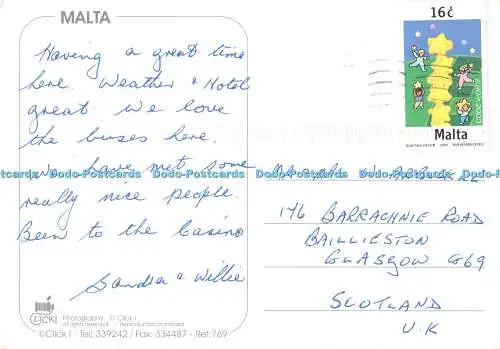 MALTA
Having a great time
here. Weather & Hotel
great. We love
the buses here.
We have met some
really nice people.
Been to the Casino
Sandra & Willie
CLICK!
Photography © Click !
All rights reserved Reproduction prohibited
©Click ! - Tel: 339242 / Fax: 334487 - Ref:769
16c
Malta
176 BARRACHNIE ROAD
BAILLIESTON
GLASGOW G69
SCOTLAND
U.K
Dodo-Postcards Dodo-Postcards Dodo-Postcards Dodo-Postcards